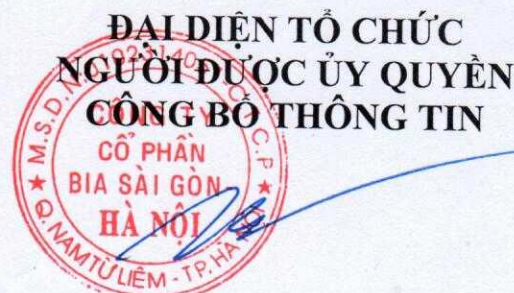 ĐẠI DIỆN TỔ CHỨC
NGƯỜI ĐƯỢC ỦY QUYỀN
CÔNG BỐ THÔNG TIN
CỔ PHẦN
BIA SÀI GÒN
HÀ NỘI
Q. NAM TỪ LIÊM - T.P. HÀ